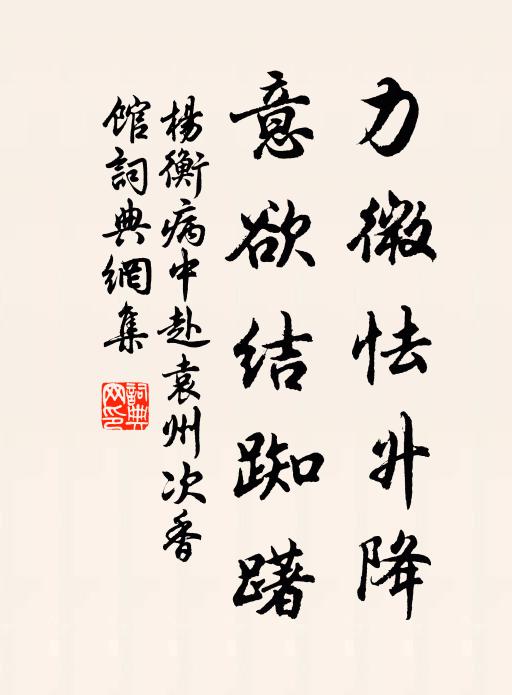 力微怯升降
意欲結踟躇
楊衡病中赴袁州次香
館詞典網集
詞典
网印